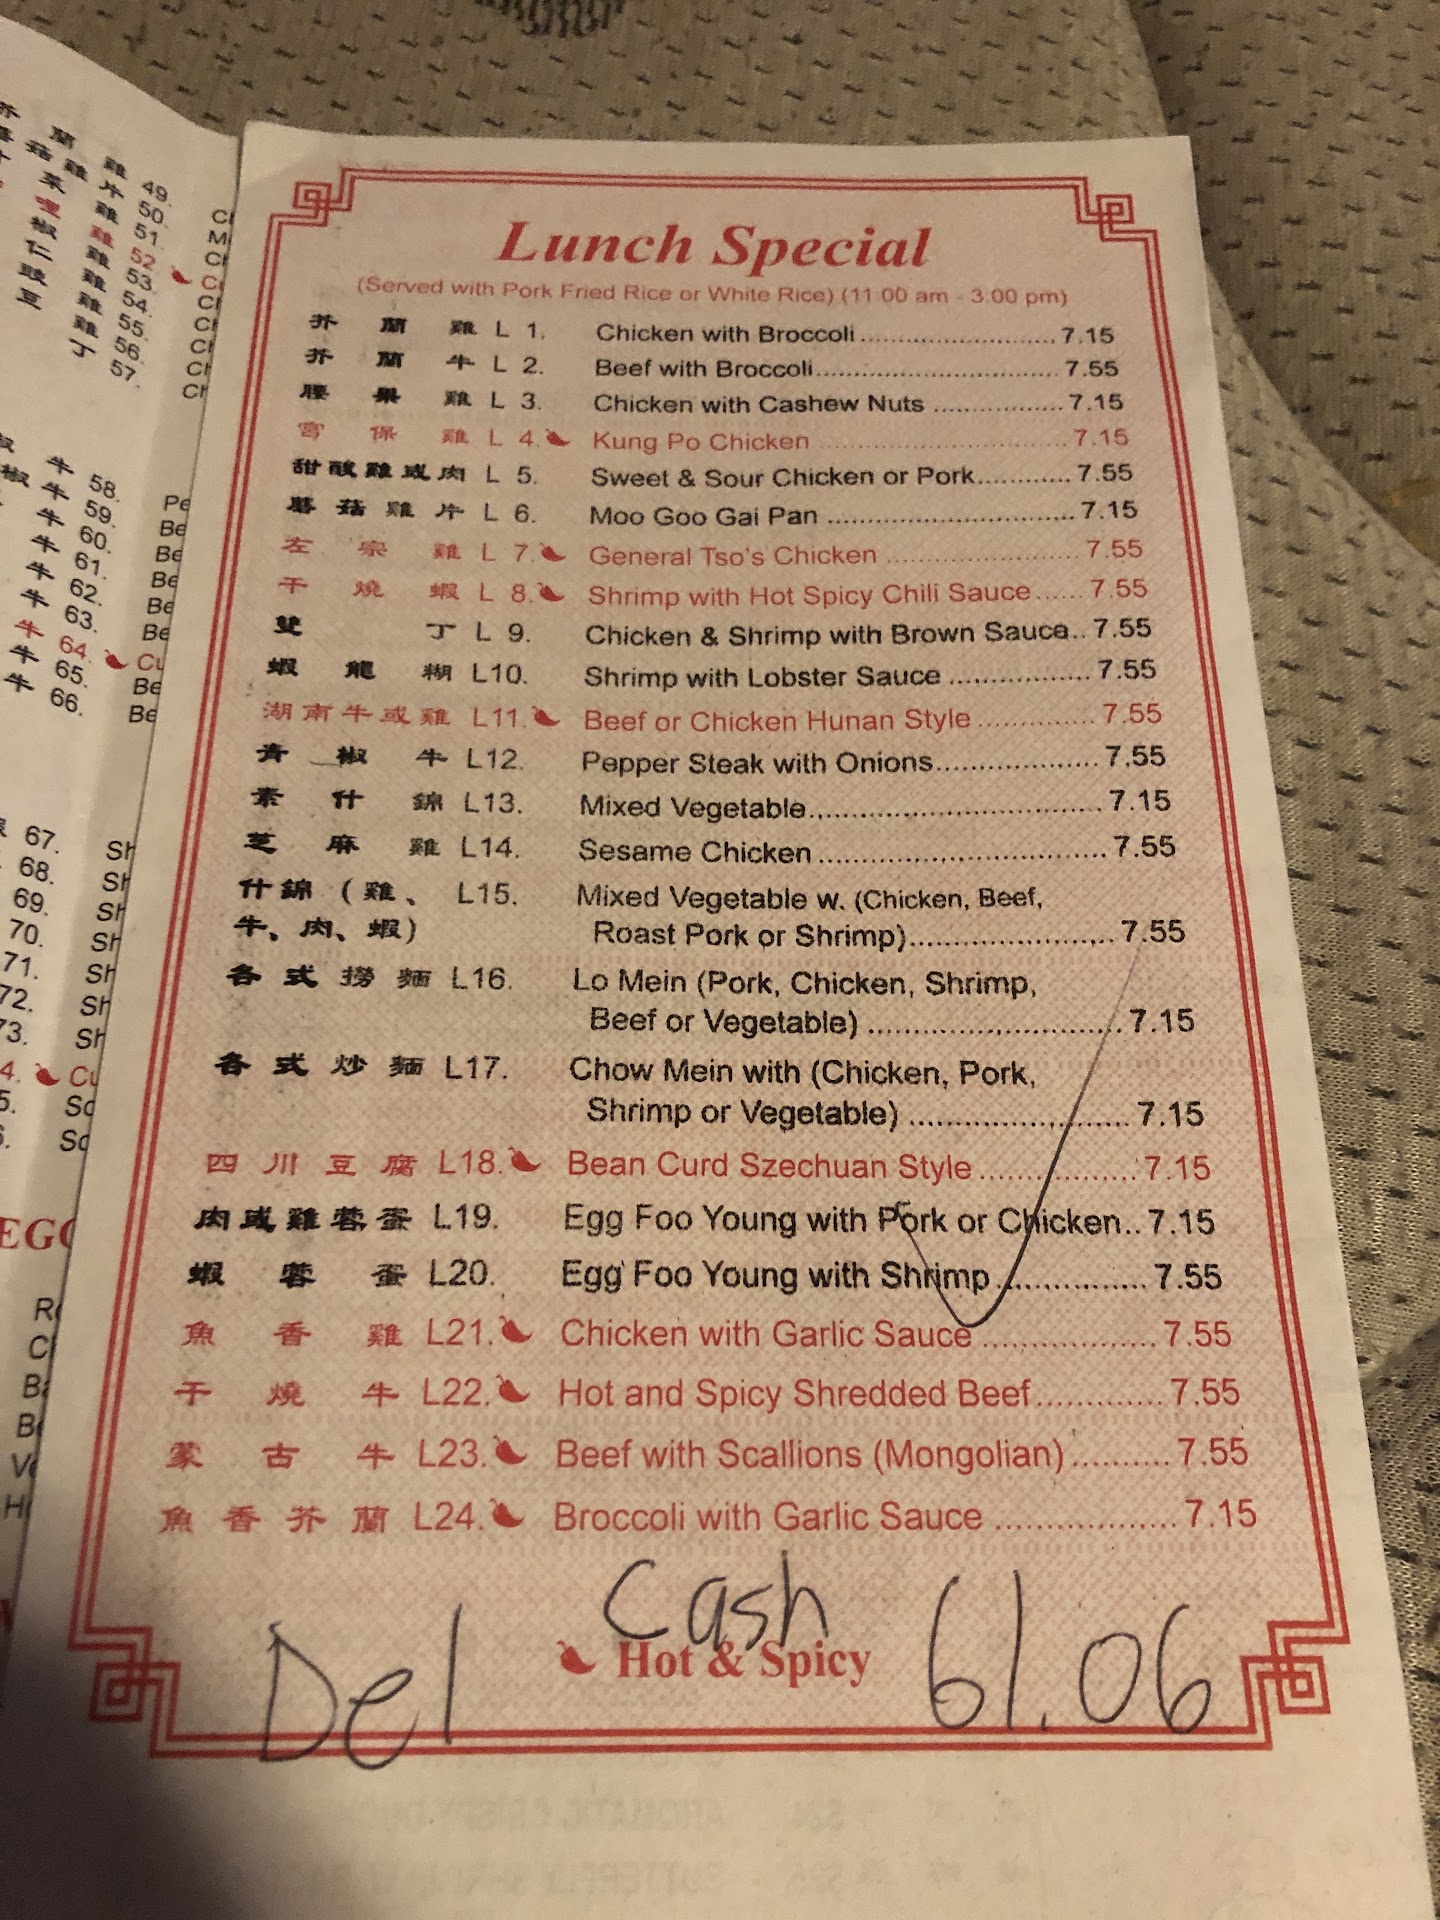 Lunch Special
(Served with Pork Fried Rice or White Rice) (11:00 am - 3:00 pm)
芥蘭雞 L 1. Chicken with Broccoli 7.15
芥蘭牛 L 2. Beef with Broccoli 7.55
腰果雞 L 3. Chicken with Cashew Nuts 7.15
宮保雞 L 4. Kung Po Chicken 7.15
甜酸雞或肉 L 5. Sweet & Sour Chicken or Pork 7.55
蘑菇雞片 L 6. Moo Goo Gai Pan 7.15
左宗雞 L 7. General Tso's Chicken 7.55
干燒蝦 L 8. Shrimp with Hot Spicy Chili Sauce 7.55
雙丁 L 9. Chicken & Shrimp with Brown Sauce 7.55
蝦龍糊 L10. Shrimp with Lobster Sauce 7.55
湖南牛或雞 L11. Beef or Chicken Hunan Style 7.55
青椒牛 L12. Pepper Steak with Onions 7.55
素什錦 L13. Mixed Vegetable 7.15
芝麻雞 L14. Sesame Chicken 7.55
什錦 (雞、 L15. Mixed Vegetable w. (Chicken, Beef,
牛、肉、蝦) Roast Pork or Shrimp) 7.55
各式撈麵 L16. Lo Mein (Pork, Chicken, Shrimp,
Beef or Vegetable) 7.15
各式炒麵 L17. Chow Mein with (Chicken, Pork,
Shrimp or Vegetable) 7.15
四川豆腐 L18. Bean Curd Szechuan Style 7.15
肉或雞蓉蛋 L19. Egg Foo Young with Pork or Chicken 7.15
蝦蓉蛋 L20. Egg Foo Young with Shrimp 7.55
魚香雞 L21. Chicken with Garlic Sauce 7.55
干燒牛 L22. Hot and Spicy Shredded Beef 7.55
蒙古牛 L23. Beef with Scallions (Mongolian) 7.55
魚香芥蘭 L24. Broccoli with Garlic Sauce 7.15
Cash
Hot & Spicy
Del 61.06
芥蘭雞 49.
菇雞片 50.
菜雞 51.
雞 52
椒雞 53.
仁雞 54.
豉雞 55.
豆雞 56.
丁 57.
牛 58. Pe
椒牛 59. Be
牛 60. Be
牛 61. Be
牛 62. Be
牛 63. Be
牛 64. Cu
牛 65. Be
牛 66. Be
67. Sh
68. Sh
69. Sh
70. Sh
71. Sh
72. Sh
73. Sh
4. Cu
5. Sc
6. Sc